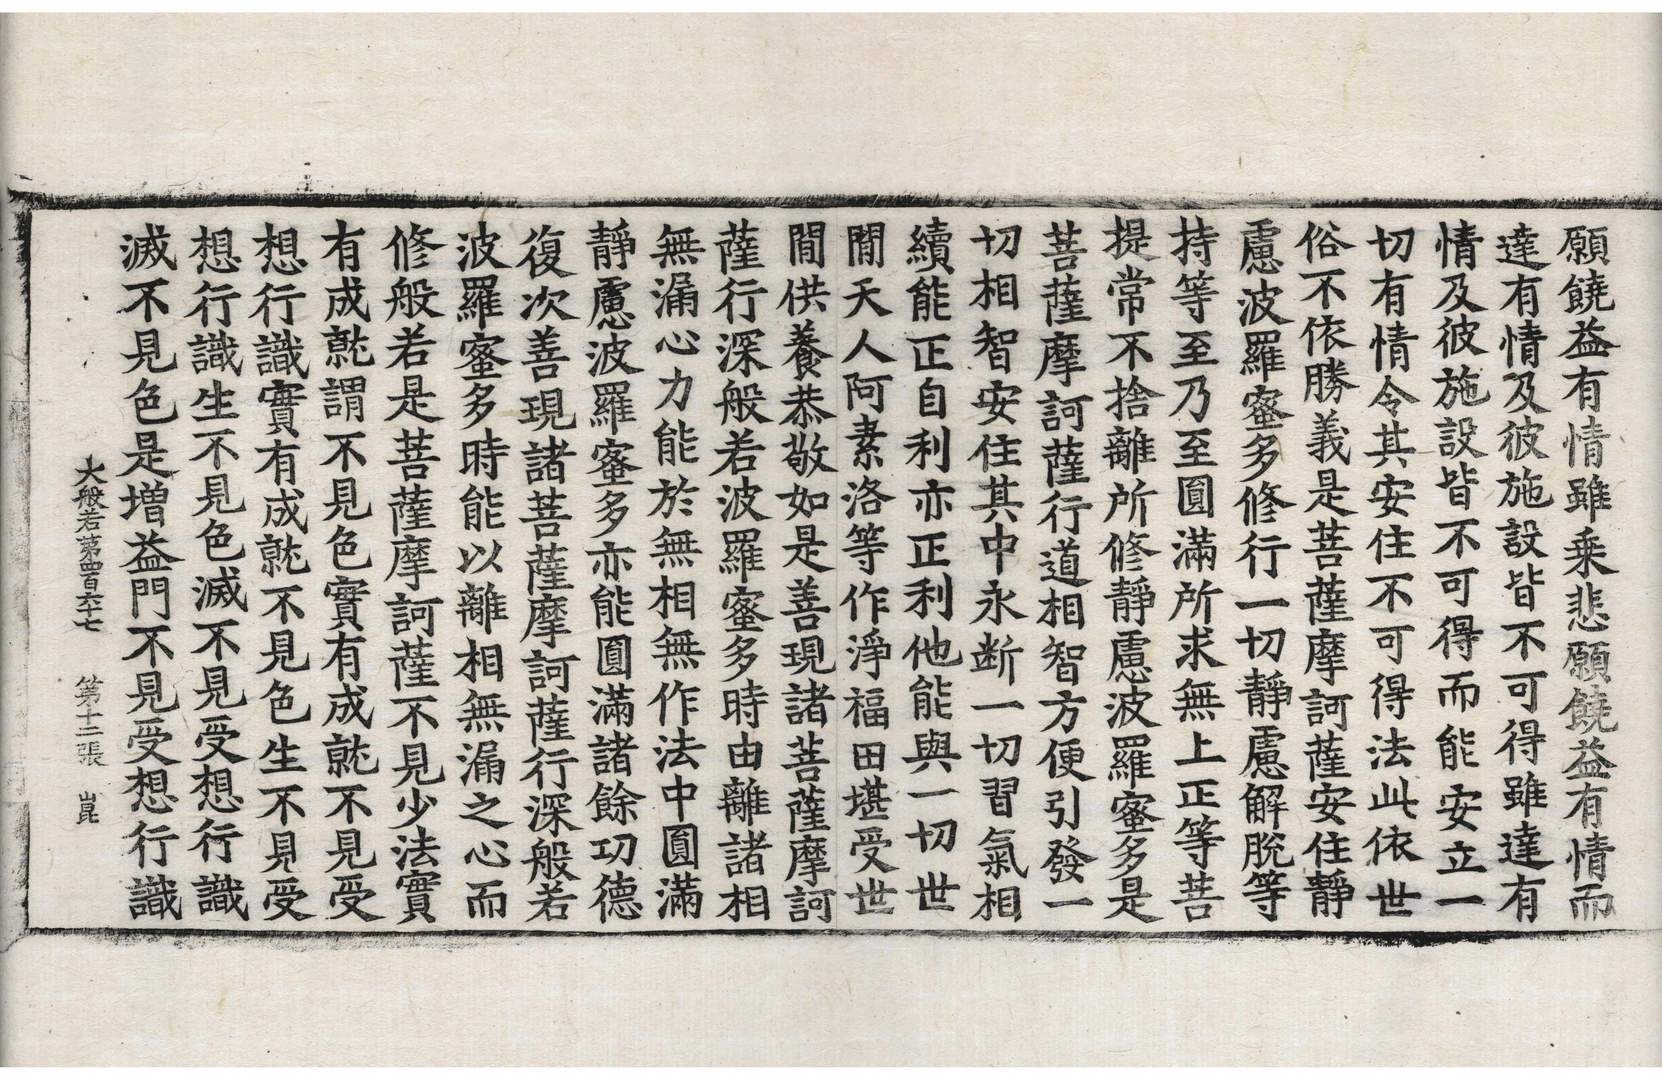 願饒益有情雖乘悲願饒益有情而
達有情及彼施設皆不可得雖達有
情及彼施設皆不可得而能安立一
切有情令其安住不可得法此依世
俗不依勝義是菩薩摩訶薩安住靜
慮波羅蜜多修行一切靜慮解脫等
持等至乃至圓滿所求無上正等菩
提常不捨離所修靜慮波羅蜜多是
菩薩摩訶薩行道相智方便引發一
切相智安住其中永斷一切習氣相
續能正自利亦正利他能與一切世
間天人阿素洛等作淨福田堪受世
間供養恭敬如是善現諸菩薩摩訶
薩行深般若波羅蜜多時由離諸相
無漏心力能於無相無作法中圓滿
靜慮波羅蜜多亦能圓滿諸餘功德
復次善現諸菩薩摩訶薩行深般若
波羅蜜多時能以離相無漏之心而
修般若是菩薩摩訶薩不見少法實
有成就謂不見色實有成就不見受
想行識實有成就不見色生不見受
想行識生不見色滅不見受想行識
滅不見色是增益門不見受想行識
大般若第四百六十七 第十二張 崑